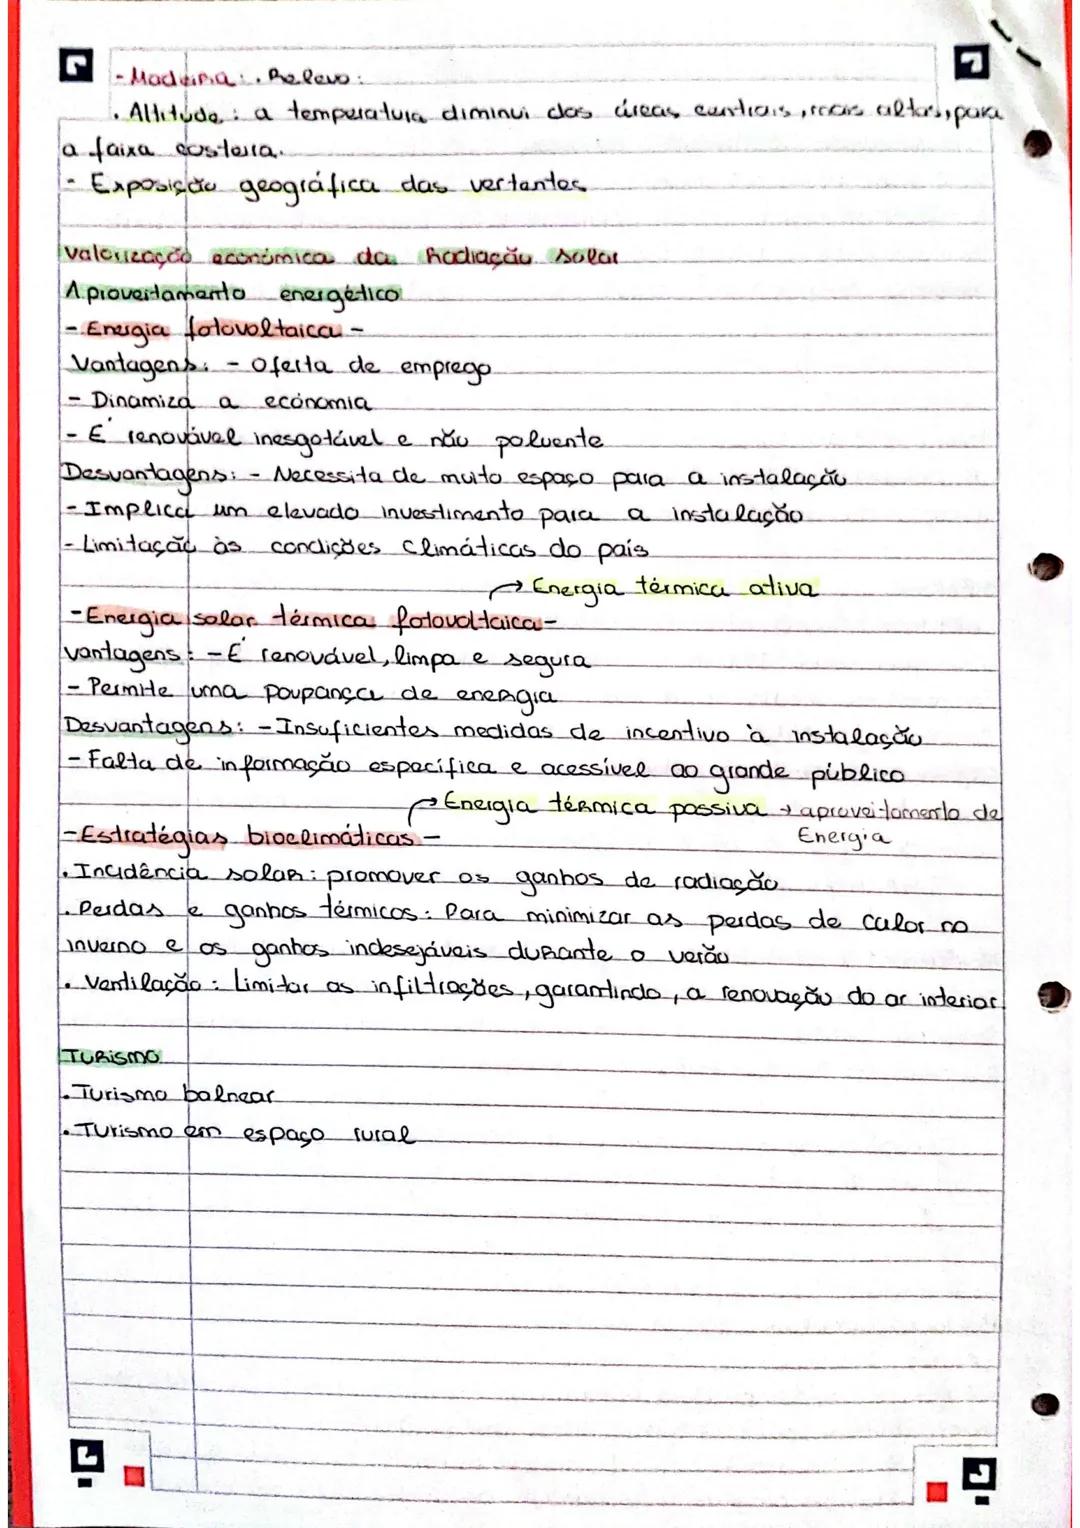 - Madeira: . Relevo:
. Altitude: a temperatura diminui das áreas centrais, mais altas, para
a faixa costeira.
- Exposição geográfica das vertentes
Valorização económica da Radiação solar
Aproveitamento energético
- Energia fotovoltaica -
Vantagens: - Oferta de emprego
- Dinamiza a economia
- É renovável inesgotável e não poluente
Desvantagens: - Necessita de muito espaço para a instalação
- Implica um elevado investimento para a instalação
- Limitação às condições climáticas do país
→ Energia térmica ativa
- Energia solar térmica fotovoltaica -
vantagens: - É renovável, limpa e segura
- Permite uma poupança de energia
Desvantagens: - Insuficientes medidas de incentivo à instalação
- Falta de informação específica e acessível ao grande público
→ Energia térmica passiva → aproveitamento de
Energia
- Estratégias bioclimáticas -
. Incidência solar: promover os ganhos de radiação
. Perdas e ganhos térmicos: Para minimizar as perdas de calor no
inverno e os ganhos indesejáveis durante o verão
. Ventilação: Limitar as infiltrações, garantindo, a renovação do ar interior
Turismo
. Turismo balnear
. Turismo em espaço rural